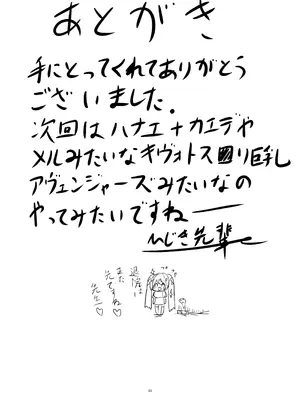 あとがき
手にとってくれてありがとう
ございました。
次回はハナエ+カエデや
メルみたいなキヴォトス■リ巨乳
アヴェンジャーズみたいなの
やってみたいですねー
ひじき先輩
退院は
まだ
先ですね♡
先生♡